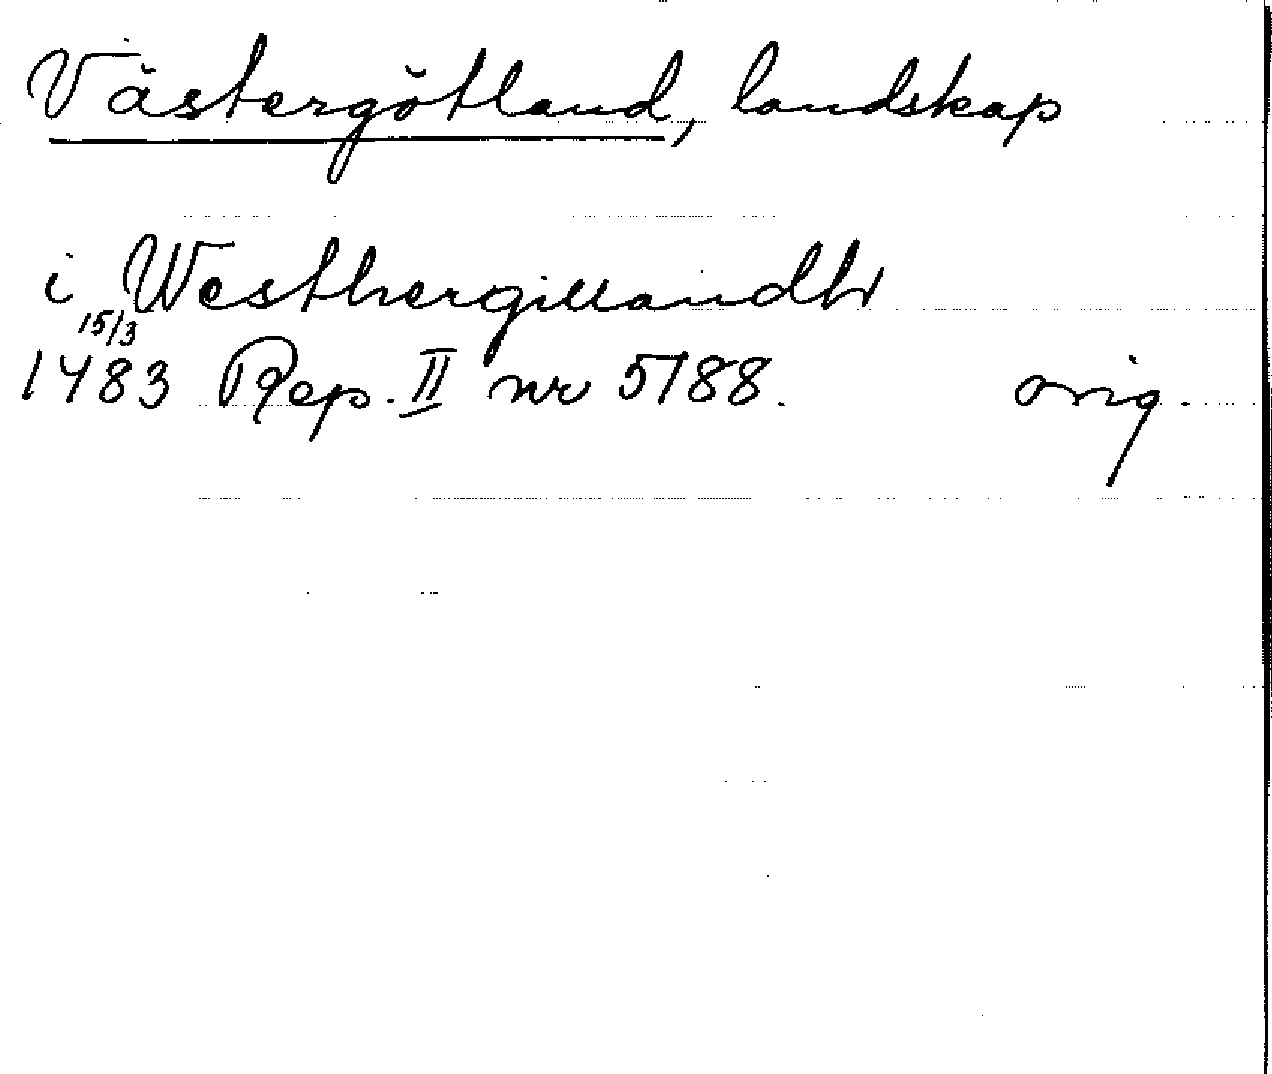 Västergötland, landskap
i Westhergillandh
15/3
1483 Rep. II nr 5188. orig.